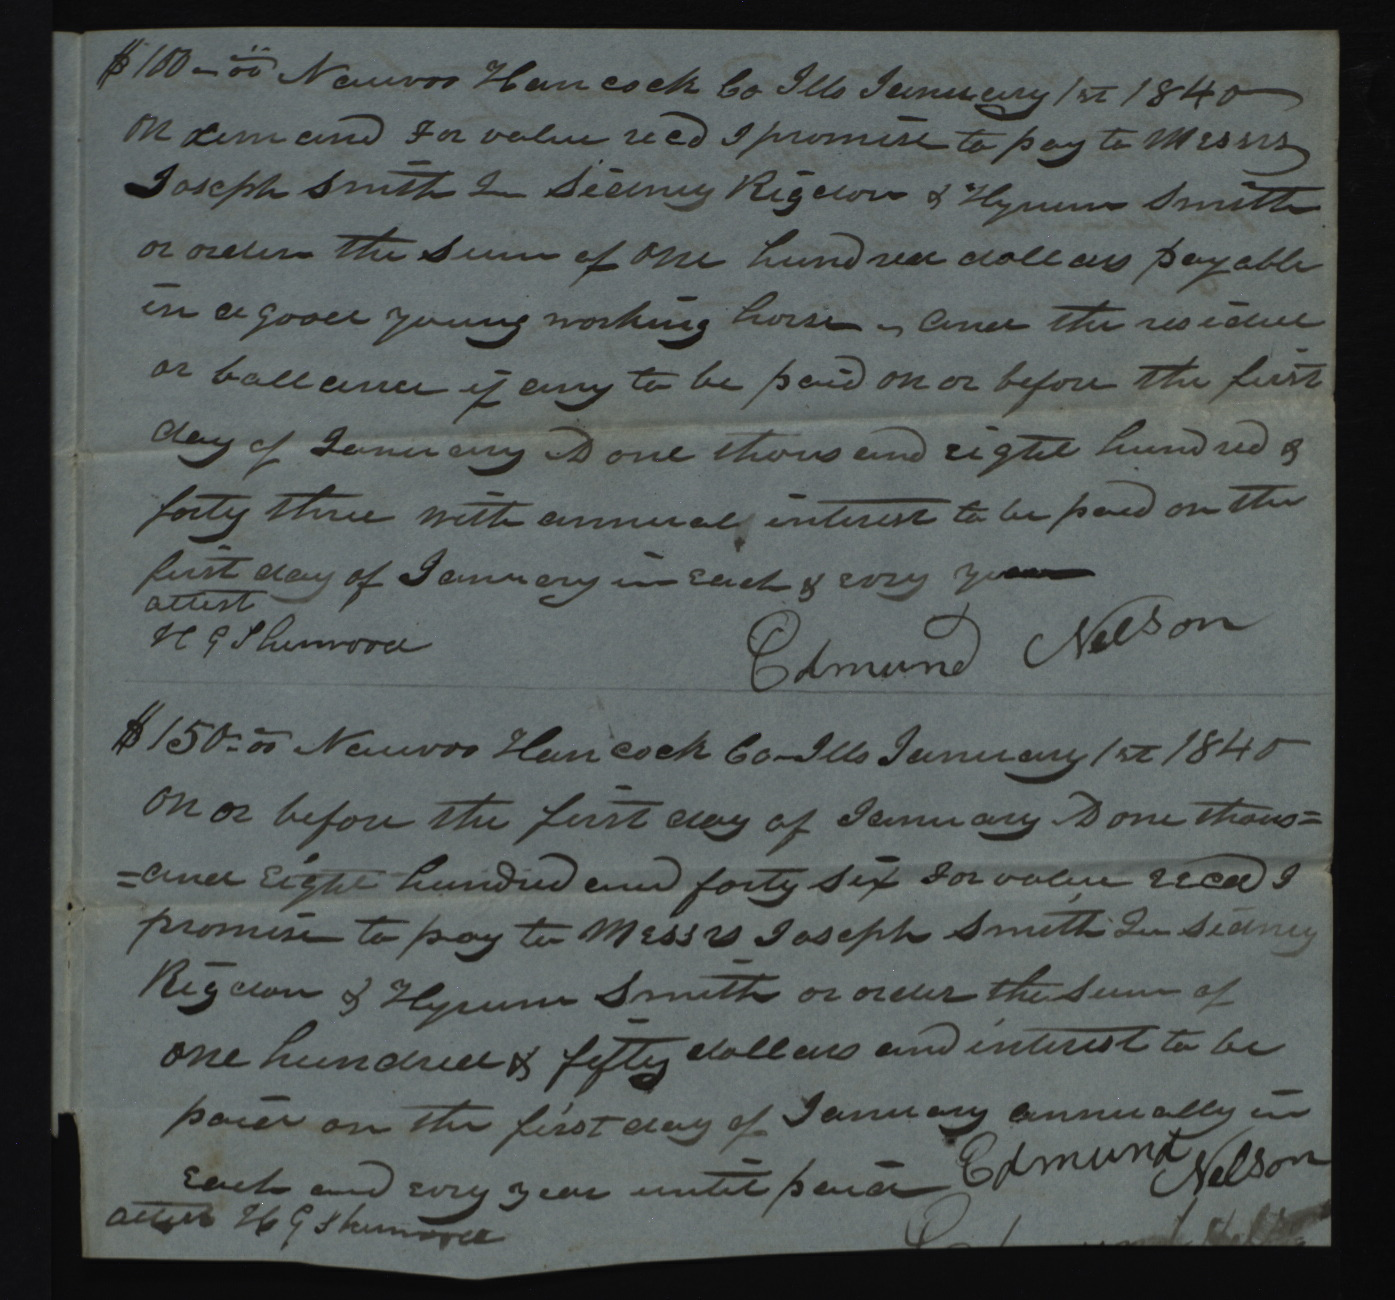 $100-00 Nauvoo Hancock Co Ills January 1st 1840
on demand For value recd I promise to pay to Messrs
Joseph Smith Jn Sidney Rigdon & Hyrum Smith
or order the sum of one hundred dollars payable
in a good young working horse, and the residue
or ballance if any to be paid on or before the first
day of January AD one thousand eight hundred &
forty three with annual interest to be paid on the
first day of January in each & evry year
attest
H G Sherwood
Edmund Nelson
$150-00 Nauvoo Hancock Co-Ills January 1st 1840
on or before the first day of January AD one thous=
=and eight hundred and forty six For value recd I
promise to pay to Messrs Joseph Smith Jn Sidney
Rigdon & Hyrum Smith or order the sum of
one hundred & fifty dollars and interest to be
paid on the first day of January annually in
each and evry year until paid Edmund Nelson
attest H G Sherwood